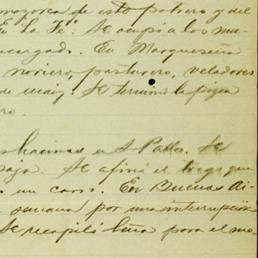 mazorca de este potrero y del
En La Fé: Se ocupó a los mu-
encargado. En Marqueseña
noriero, pasturero, veladores
de maiz. Se terminó la pizca
ro.
haciendas en S. Pablo. Se
paja. Se afinó el trigo que
a un carro. En Buenas Ai-
semana por una interrupción
Se recopiló leña para el ma-